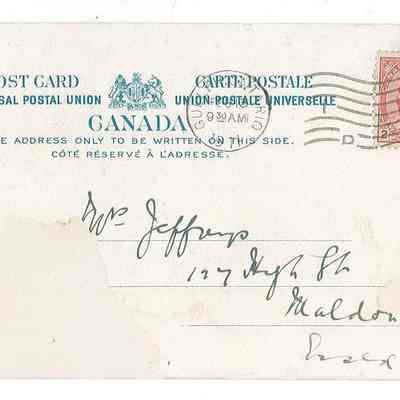 OST CARD CARTE POSTALE
SAL POSTAL UNION UNION POSTALE UNIVERSELLE
CANADA
E ADDRESS ONLY TO BE WRITTEN ON THIS SIDE.
CÔTÉ RÉSERVÉ À L'ADRESSE.
9 30 AM
D
2
Mrs Jeffreys
127 High St
Maldon
Essex